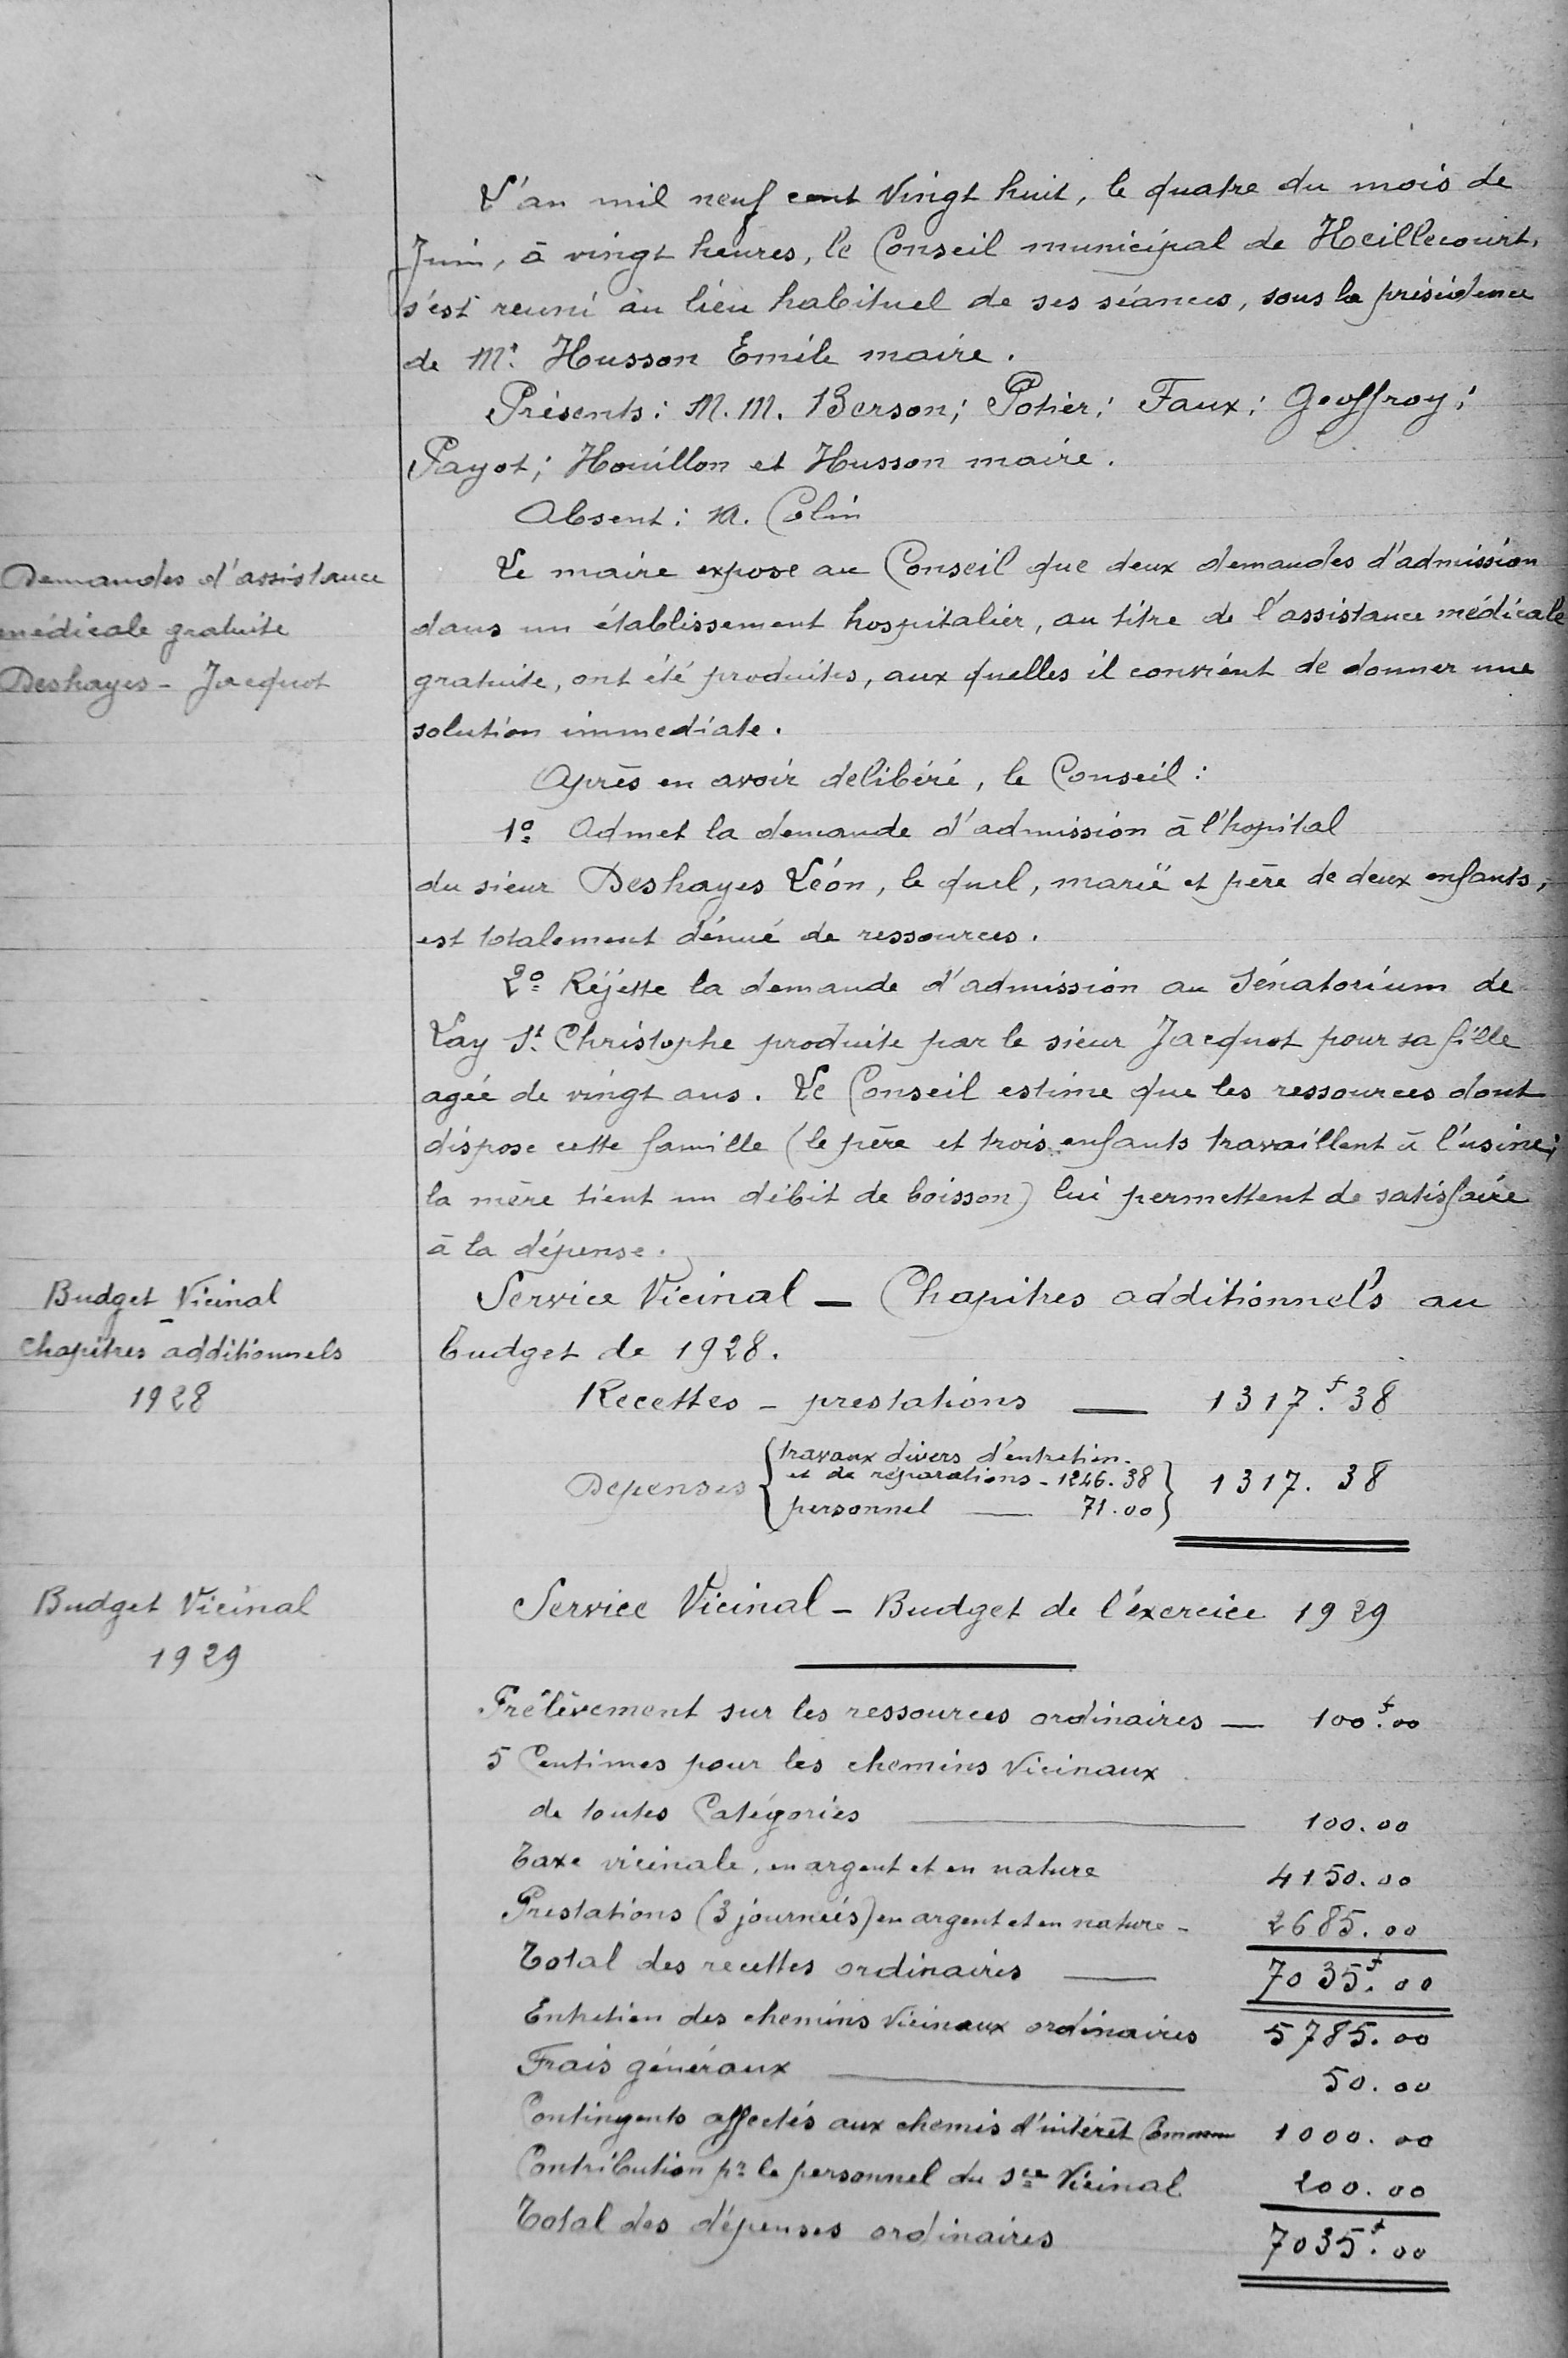 L'an mil neuf cent Vingt huit, le quatre du mois de
Juin, à vingt heures, le Conseil municipal de Heillecourt,
s'est reuni au lieu habituel de ses séances, sous la présidence
de Mr. Husson Emile maire.
Présents: M. M. Berson; Potier; Faux; Geoffroy;
Payot; Houillon et Husson maire.
Absent: M. Colin
Demandes d'assistance
médicale gratuite
Deshayes - Jacquot
Le maire expose au Conseil que deux demandes d'admission
dans un établissement hospitalier, au titre de l'assistance médicale
gratuite, ont été produites, aux quelles il convient de donner une
solution immediate.
Après en avoir delibéré, le Conseil:
1º Admet la demande d'admission à l'hopital
du sieur Deshayes Léon, le quel, marié et père de deux enfants,
est totalement dénué de ressources.
2º Réjette la demande d'admission au Sénatorium de
Lay St Christophe produite par le sieur Jacquot pour sa fille
agée de vingt ans. Le Conseil estime que les ressources dont
dispose cette famille (le père et trois enfants travaillent à l'usine;
la mère tient un débit de boisson) lui permettent de satisfaire
à la dépense.
Budget Vicinal
-
Chapitres additionnels
1928
Service Vicinal - Chapitres additionnels au
budget de 1928.
Recettes - prestations — 1317.f 38
Depenses { travaux divers d'entretien.
et de réparations - 1246.38 } 1317. 38
personnel — 71.00
Budget Vicinal
1929
Service Vicinal - Budget de l'éxercice 1929
Prélèvement sur les ressources ordinaires — 100f.00
5 Centimes pour les chemins Vicinaux
de toutes Catégories — 100.00
Taxe vicinale, en argent et en nature 4150.00
Prestations (3 journéés) en argent et en nature - 2685.00
Total des recettes ordinaires — 7035f.00
Entretien des chemins Vicinaux ordinaires 5785.00
Frais généraux — 50.00
Contingents affectés aux chemis d'intérêt Commun 1000.00
Contribution pr le personnel du sce Vicinal 200.00
Total des dépenses ordinaires 7035f.00